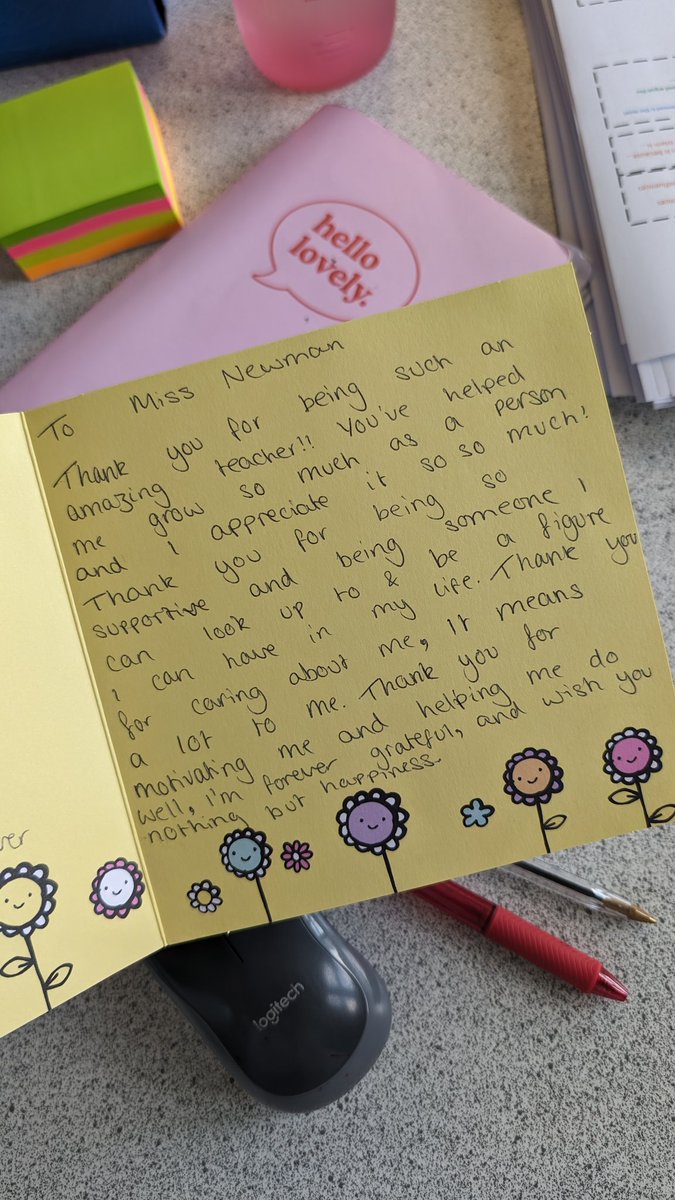 hello
lovely.
To Miss Newman
Thank you for being such an
amazing teacher!! You've helped
me grow so much as a person
and I appreciate it so so much!
Thank you for being so
supportive and being someone I
can look up to & be a figure
I can have in my life. Thank you
for caring about me, It means
a lot to me. Thank you for
motivating me and helping me do
well, i'm forever grateful, and wish you
nothing but happiness.
logitech